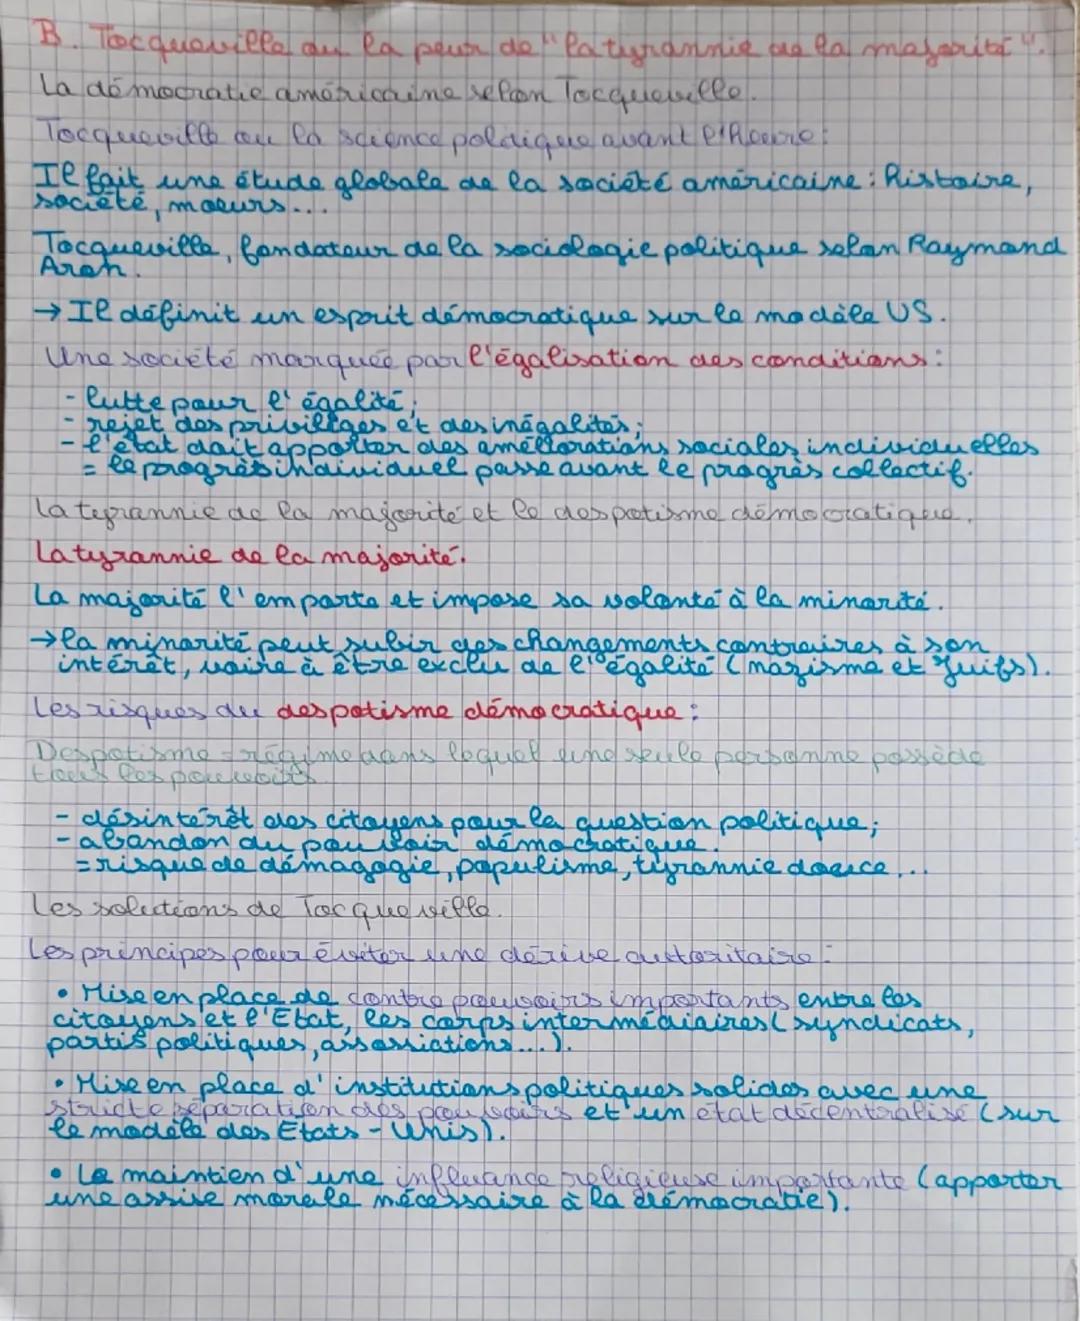 B. Tocqueville ou la peur de "la tyrannie de la majorité".
La démocratie américaine selon Tocqueville.
Tocqueville ou la science politique avant l'heure :
Il fait une étude globale de la société américaine : histoire,
société, mœurs...
Tocqueville, fondateur de la sociologie politique selon Raymond
Aron.
→ Il définit un esprit démocratique sur le modèle US.
Une société marquée par l'égalisation des conditions :
- lutte pour l'égalité ;
- rejet des privilèges et des inégalités ;
- l'état doit apporter des améliorations sociales individuelles
= le progrès individuel passe avant le progrès collectif.
La tyrannie de la majorité et le despotisme démocratique.
La tyrannie de la majorité.
La majorité l'emporte et impose sa volonté à la minorité.
→ la minorité peut subir des changements contraires à son
intérêt, voire à être exclu de l'égalité (nazisme et Juifs).
Les risques du despotisme démocratique :
Despotisme = régime dans lequel une seule personne possède
tous les pouvoirs
- désintérêt des citoyens pour la question politique ;
- abandon du pouvoir démocratique.
= risque de démagogie, populisme, tyrannie douce...
Les solutions de Tocqueville.
Les principes pour éviter une dérive autoritaire :
• Mise en place de contre pouvoirs importants entre les
citoyens et l'Etat, les corps intermédiaires (syndicats,
partis politiques, associations...).
• Mise en place d'institutions politiques solides avec une
stricte séparation des pouvoirs et un état décentralisé (sur
le modèle des Etats-Unis).
• Le maintien d'une influence religieuse importante (apporter
une assise morale nécessaire à la démocratie).